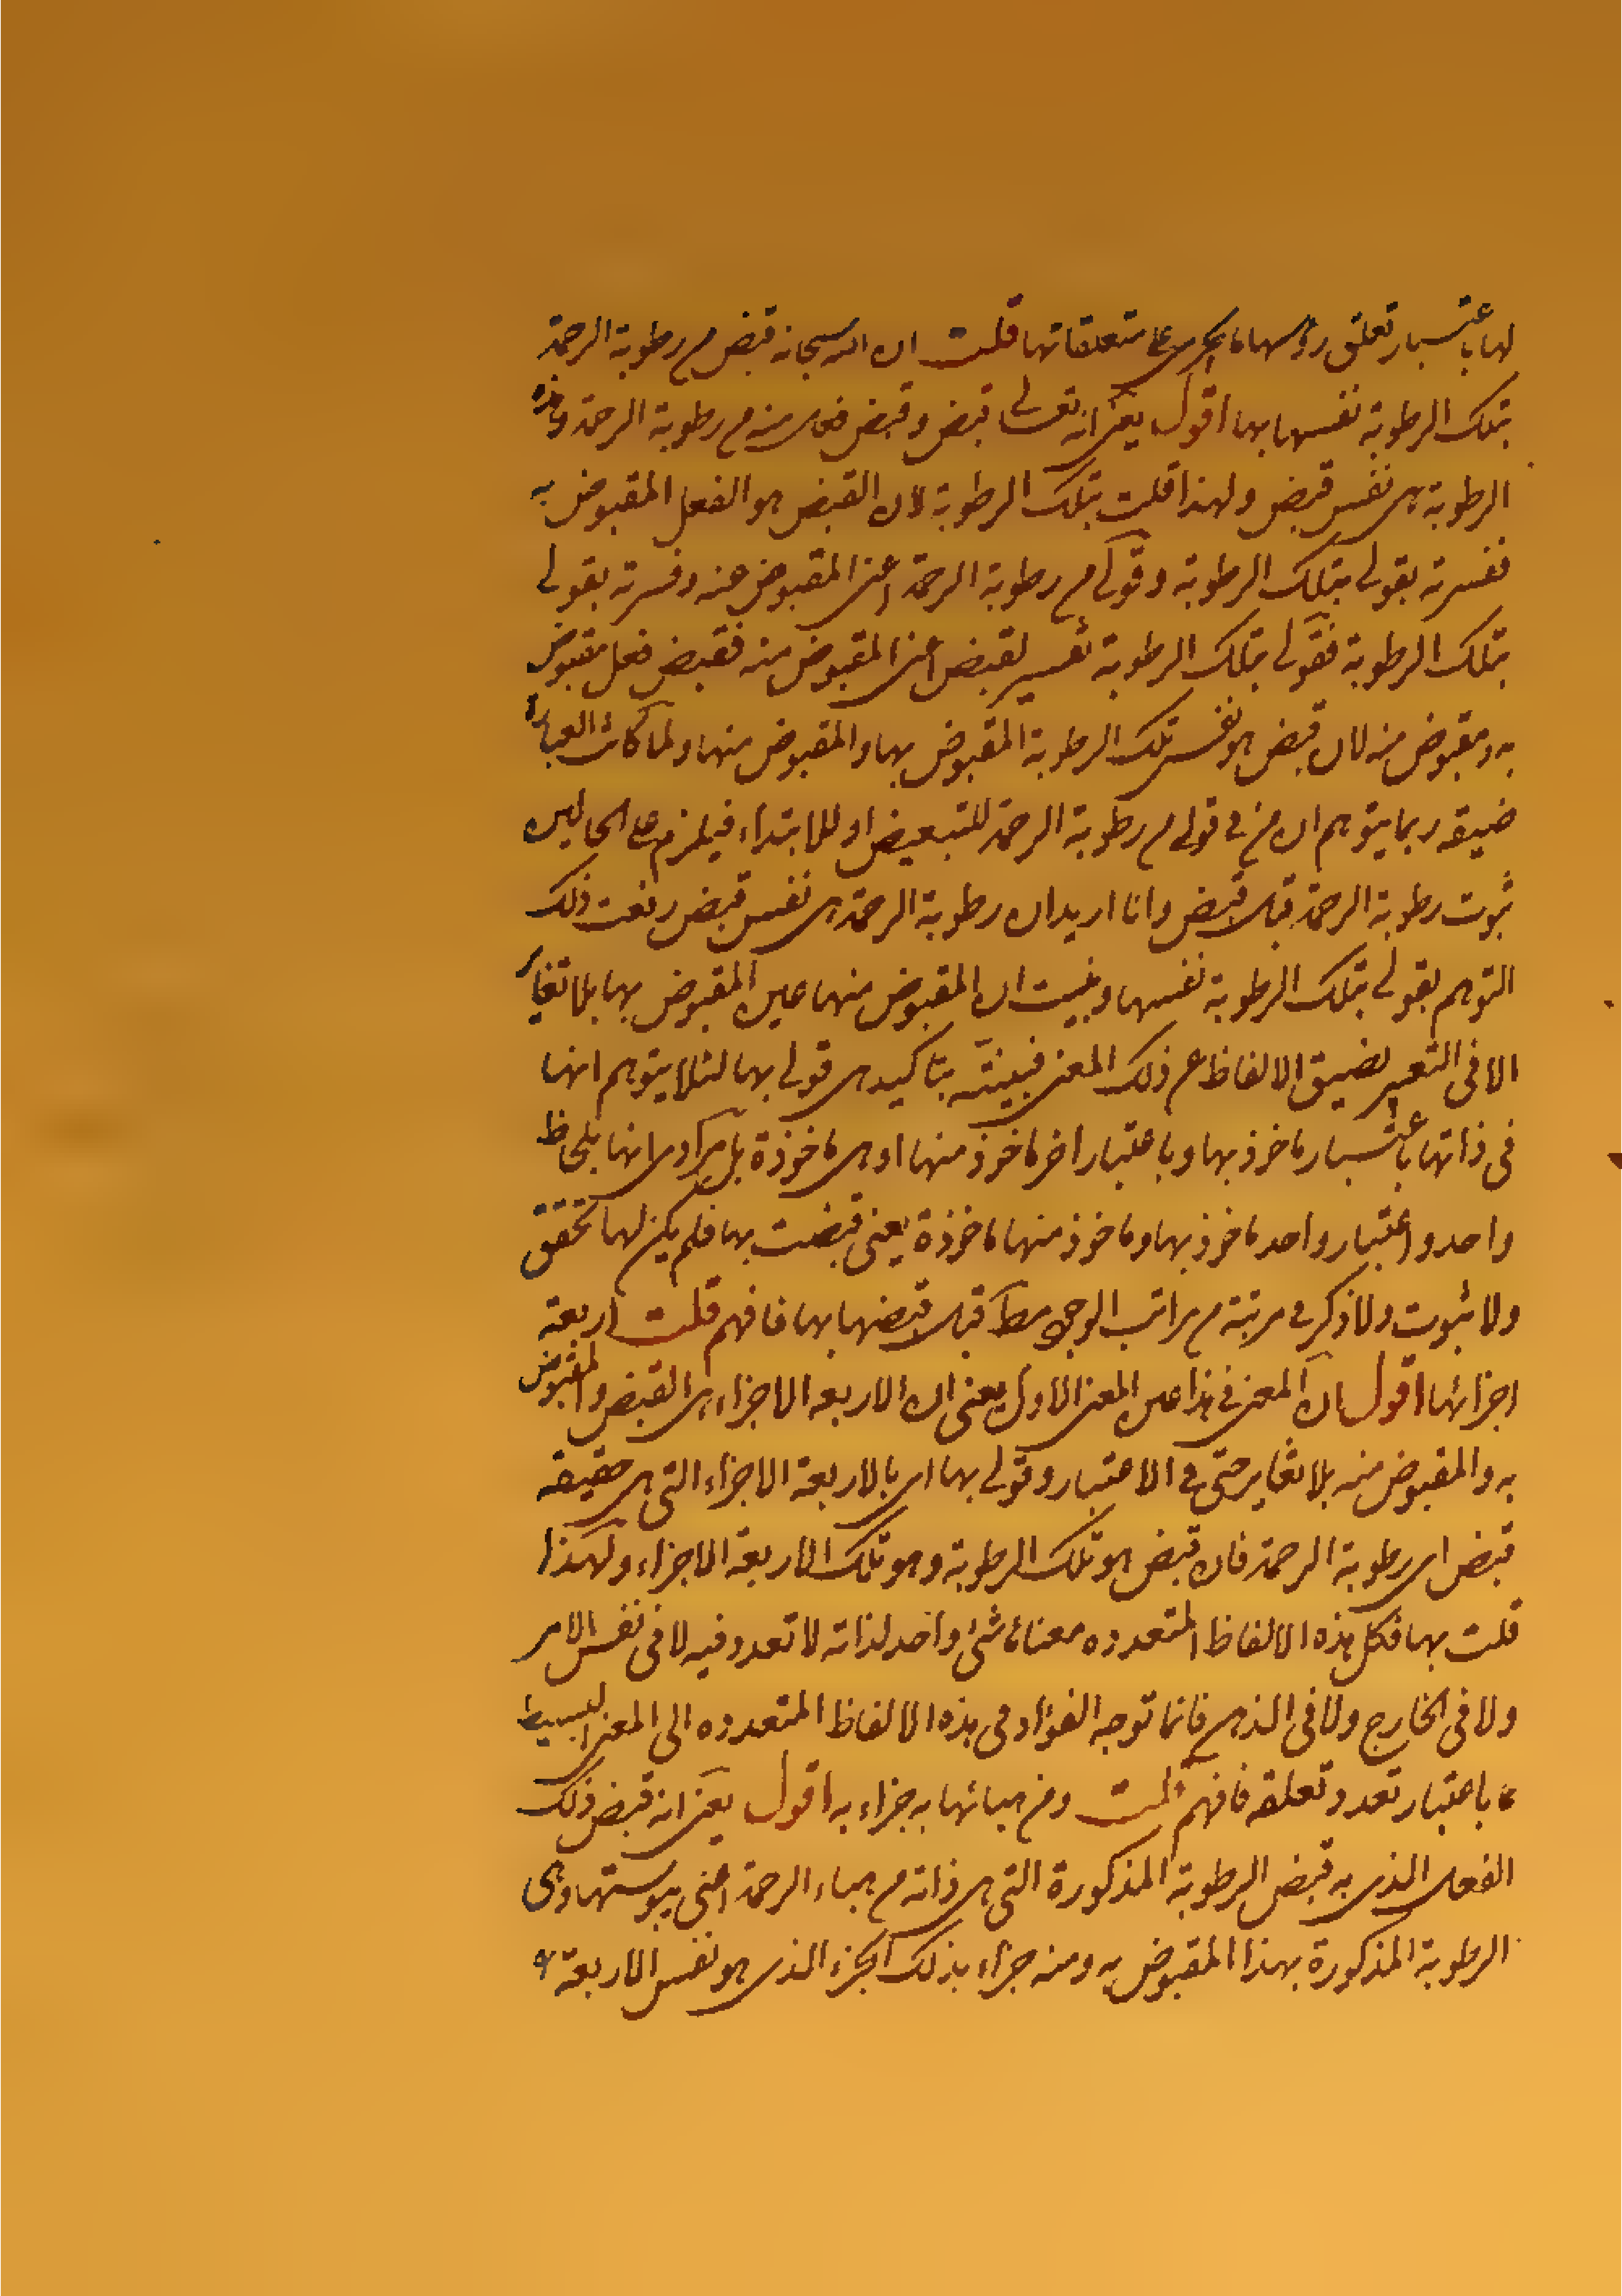 لها باعتبار تعلق رؤسها ما يجري على متعلقاتها قلت ان الله سبحانه قبض من رطوبة الرحمة
بتلك الرطوبة نفسها بها اقول يعني انه تعالى قبض وقبض فعل منه من رطوبة الرحمة وهذه
الرطوبة هي نفس قبض ولهذا قلت بتلك الرطوبة لان القبض هو الفعل المقبوض به
ففسرته بقولي بتلك الرطوبة وقولي من رطوبة الرحمة اعني المقبوض منه وفسرته بقولي
بتلك الرطوبة فقولي بتلك الرطوبة تفسير لقبض اعني المقبوض منه فقبض فعل مقبوض
به ومقبوض منه لان قبض هو نفس تلك الرطوبة المقبوض بها والمقبوض منها ولما كانت العبارة
ضيقه ربما يتوهم ان من في قولي من رطوبة الرحمة للتبعيض او للابتداء فيلزم على الحالين
ثبوت رطوبة الرحمة قبل قبض وانا اريد ان رطوبة الرحمة هي نفس قبض رفعت ذلك
التوهم بقولي بتلك الرطوبة نفسها وبينت ان المقبوض منها عين المقبوض بها بلا تغاير
الا في التعبير لضيق الالفاظ عن ذلك المعنى فبينته بتاكيدي قولي بها لئلا يتوهم انها
في ذاتها باعتبار ماخوذ بها وباعتبار اخر ماخوذ منها او هي ماخوذة بل مرادي انها بلحاظ
واحد واعتبار واحد ماخوذ بها وماخوذ منها ماخوذة يعني قبضت بها فلم يكن لها تحقق
ولا ثبوت ولا ذكر في مرتبة من مراتب الوجود مط قبل قبضها بها فافهم قلت اربعة
اجزائها اقول ان المعنى في هذا عين المعنى الاول يعني ان الاربعه الاجزاء هي القبض والمقبوض
به والمقبوض منه بلا تغاير حتى في الاعتبار وقولي بها اي بالاربعة الاجزاء التي هي حقيقه
قبض اي رطوبة الرحمة فان قبض هو تلك الرطوبة وهو تلك الاربعة الاجزاء ولهذا
قلت بها فكل هذه الالفاظ المتعدده معناها شئ واحد لذاته لا تعدد فيه لا في نفس الامر
ولا في الخارج ولا في الذهن فانما توجه الفؤاد في هذه الالفاظ المتعدده الى المعنى البسيط
باعتبار تعدد تعلقه فافهم قلت ومن هبائها به جزاء به اقول يعني انه قبض ذلك
الفعل الذي به قبض الرطوبة المذكورة التي هي ذاته من هباء الرحمة اعني يبوستها وهي
الرطوبة المذكورة بهذا المقبوض به ومنه جزاء بذلك الجزء الذي هو نفس الاربعة